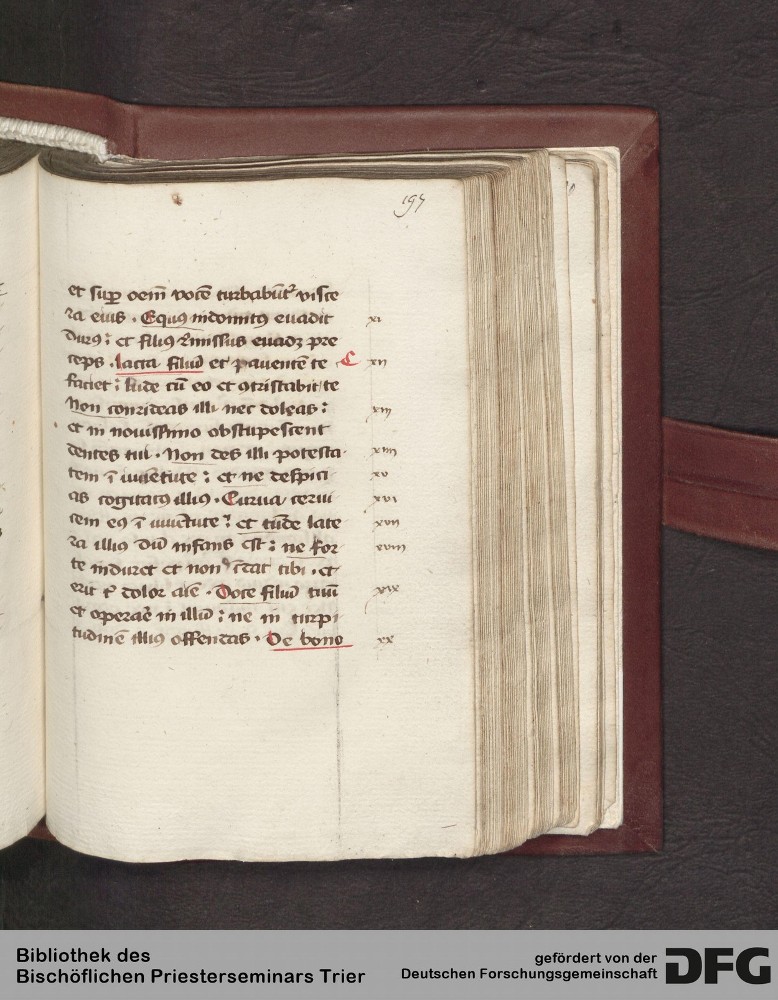 197
et sup oem̄ vocē turbabūt᷑ visce
ra eius . Equꝯ indomitꝯ euadit xi
durꝯ : et filiꝯ remissus euadꝫ pre
ceps . lacta filiū et pauentē te C xii
faciet : lude cū eo et ꝯtristabit te
Non corrideas illi nec doleas : xiii
et in nouissimo obstupescent
dentes tui . Non des illi potesta xiiii
tem ī iuuētute : et ne despici xv
as cogitatꝰ illiꝯ . Curua cerui xvi
cem eiꝯ ī iuuētute : et tūde late xvii
ra illiꝯ dū infans est : ne for xviii
te induret et non c̄dat tibi . et
erit t᷑ dolor aīe . Doce filiū tuū xix
et operar̄ in illū : ne in turpi
tudinē illiꝯ offendas . De bono xx
Bibliothek des
Bischöflichen Priesterseminars Trier
gefördert von der
Deutschen Forschungsgemeinschaft
DFG